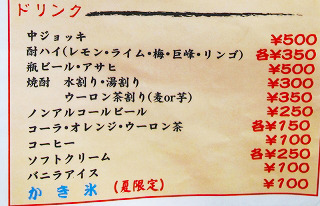 ドリンク
中ジョッキ ¥500
酎ハイ(レモン・ライム・梅・巨峰・リンゴ) 各¥350
瓶ビール・アサヒ ¥500
焼酎 水割り・湯割り ¥300
ウーロン茶割り(麦or芋) ¥350
ノンアルコールビール ¥250
コーラ・オレンジ・ウーロン茶 各¥150
コーヒー ¥100
ソフトクリーム 各¥250
バニラアイス ¥100
かき氷 (夏限定) ¥100